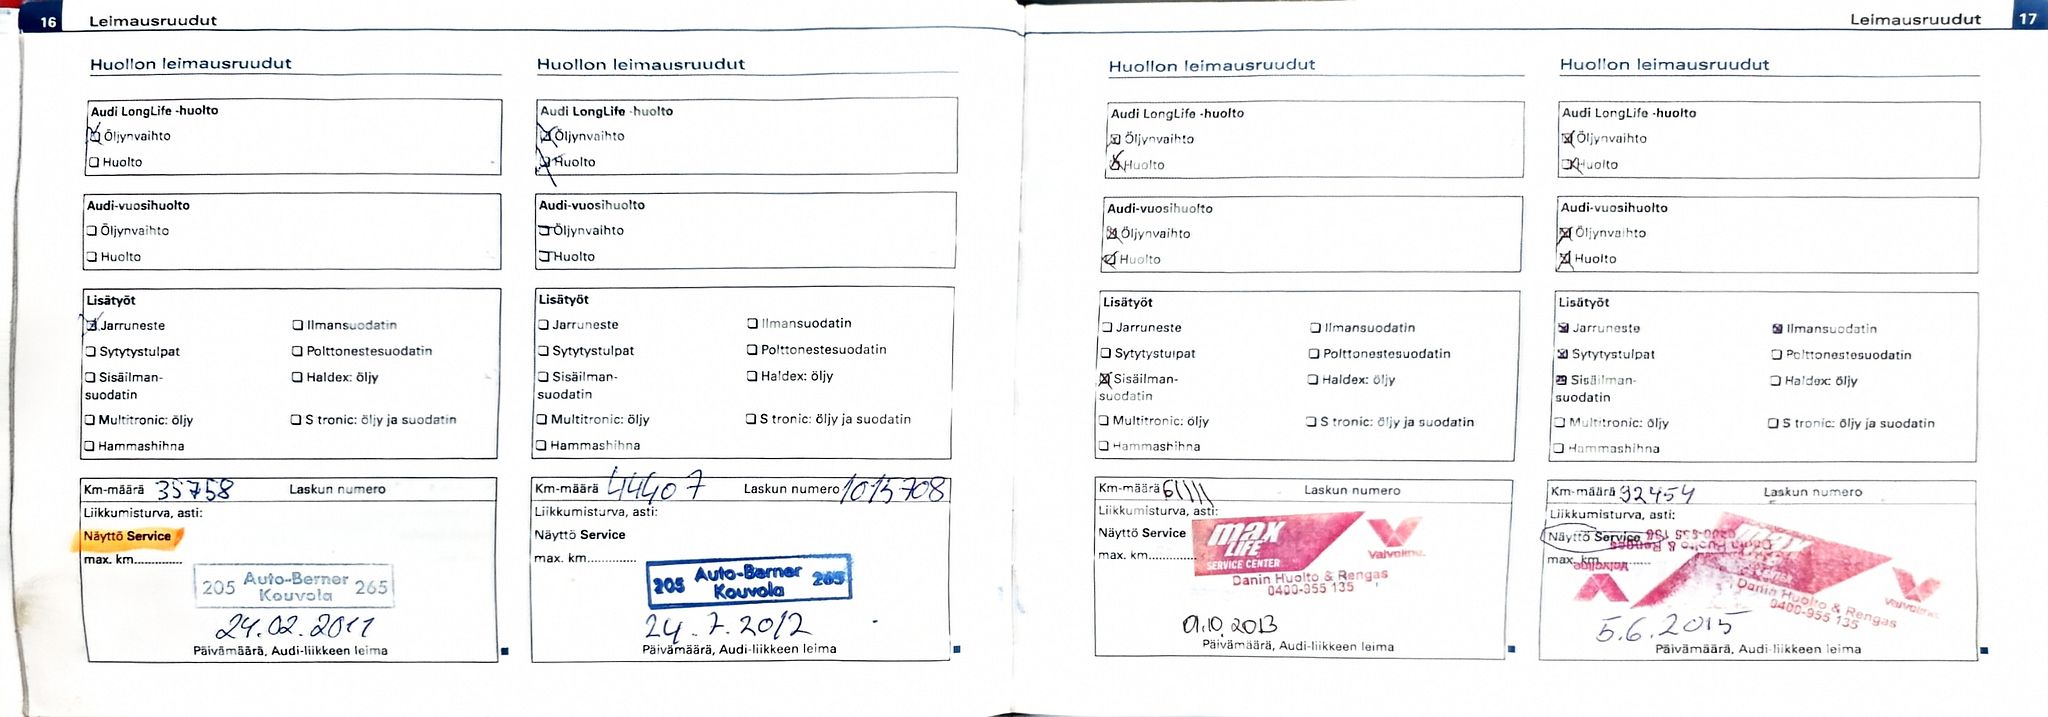 16 Leimausruudut
Huollon leimausruudut
Audi LongLife -huolto
Öljynvaihto
Huolto
Audi-vuosihuolto
Öljynvaihto
Huolto
Lisätyöt
Jarruneste Ilmansuodatin
Sytytystulpat Polttonestesuodatin
Sisäilman- Haldex: öljy
suodatin
Multitronic: öljy S tronic: öljy ja suodatin
Hammashihna
Km-määrä 35758 Laskun numero
Liikkumisturva, asti:
Näyttö Service
max. km..............
205 Auto-Berner 265
Kouvola
24.02.2011
Päivämäärä, Audi-liikkeen leima
Huollon leimausruudut
Audi LongLife -huolto
Öljynvaihto
Huolto
Audi-vuosihuolto
Öljynvaihto
Huolto
Lisätyöt
Jarruneste Ilmansuodatin
Sytytystulpat Polttonestesuodatin
Sisäilman- Haldex: öljy
suodatin
Multitronic: öljy S tronic: öljy ja suodatin
Hammashihna
Km-määrä 44407 Laskun numero 1015708
Liikkumisturva, asti:
Näyttö Service
max. km..............
205 Auto-Berner 265
Kouvola
24.7.2012
Päivämäärä, Audi-liikkeen leima
Leimausruudut 17
Huollon leimausruudut
Audi LongLife -huolto
Öljynvaihto
Huolto
Audi-vuosihuolto
Öljynvaihto
Huolto
Lisätyöt
Jarruneste Ilmansuodatin
Sytytystulpat Polttonestesuodatin
Sisäilman- Haldex: öljy
suodatin
Multitronic: öljy S tronic: öljy ja suodatin
Hammashihna
Km-määrä 61111 Laskun numero
Liikkumisturva, asti:
Näyttö Service
max. km..............
max
LIFE
SERVICE CENTER
Valvoline
Danin Huolto & Rengas
0400-955 135
01.10.2013
Päivämäärä, Audi-liikkeen leima
Huollon leimausruudut
Audi LongLife -huolto
Öljynvaihto
Huolto
Audi-vuosihuolto
Öljynvaihto
Huolto
Lisätyöt
Jarruneste Ilmansuodatin
Sytytystulpat Polttonestesuodatin
Sisäilman- Haldex: öljy
suodatin
Multitronic: öljy S tronic: öljy ja suodatin
Hammashihna
Km-määrä 92454 Laskun numero
Liikkumisturva, asti:
Näyttö Service
max. km..............
max
Valvoline
Danin Huolto & Rengas
0400-955 135
5.6.2015
Päivämäärä, Audi-liikkeen leima